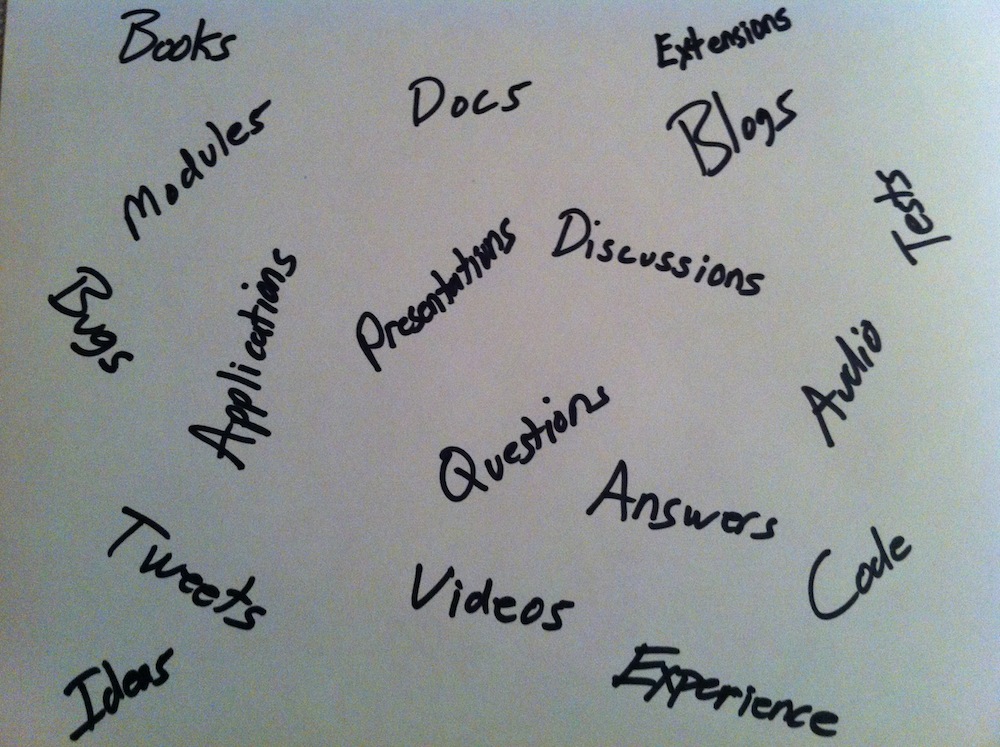 Books
Extensions
Docs
Blogs
Modules
Tests
Discussions
Presentations
Bugs
Applications
Audio
Questions
Answers
Tweets
Code
Videos
Ideas
Experience